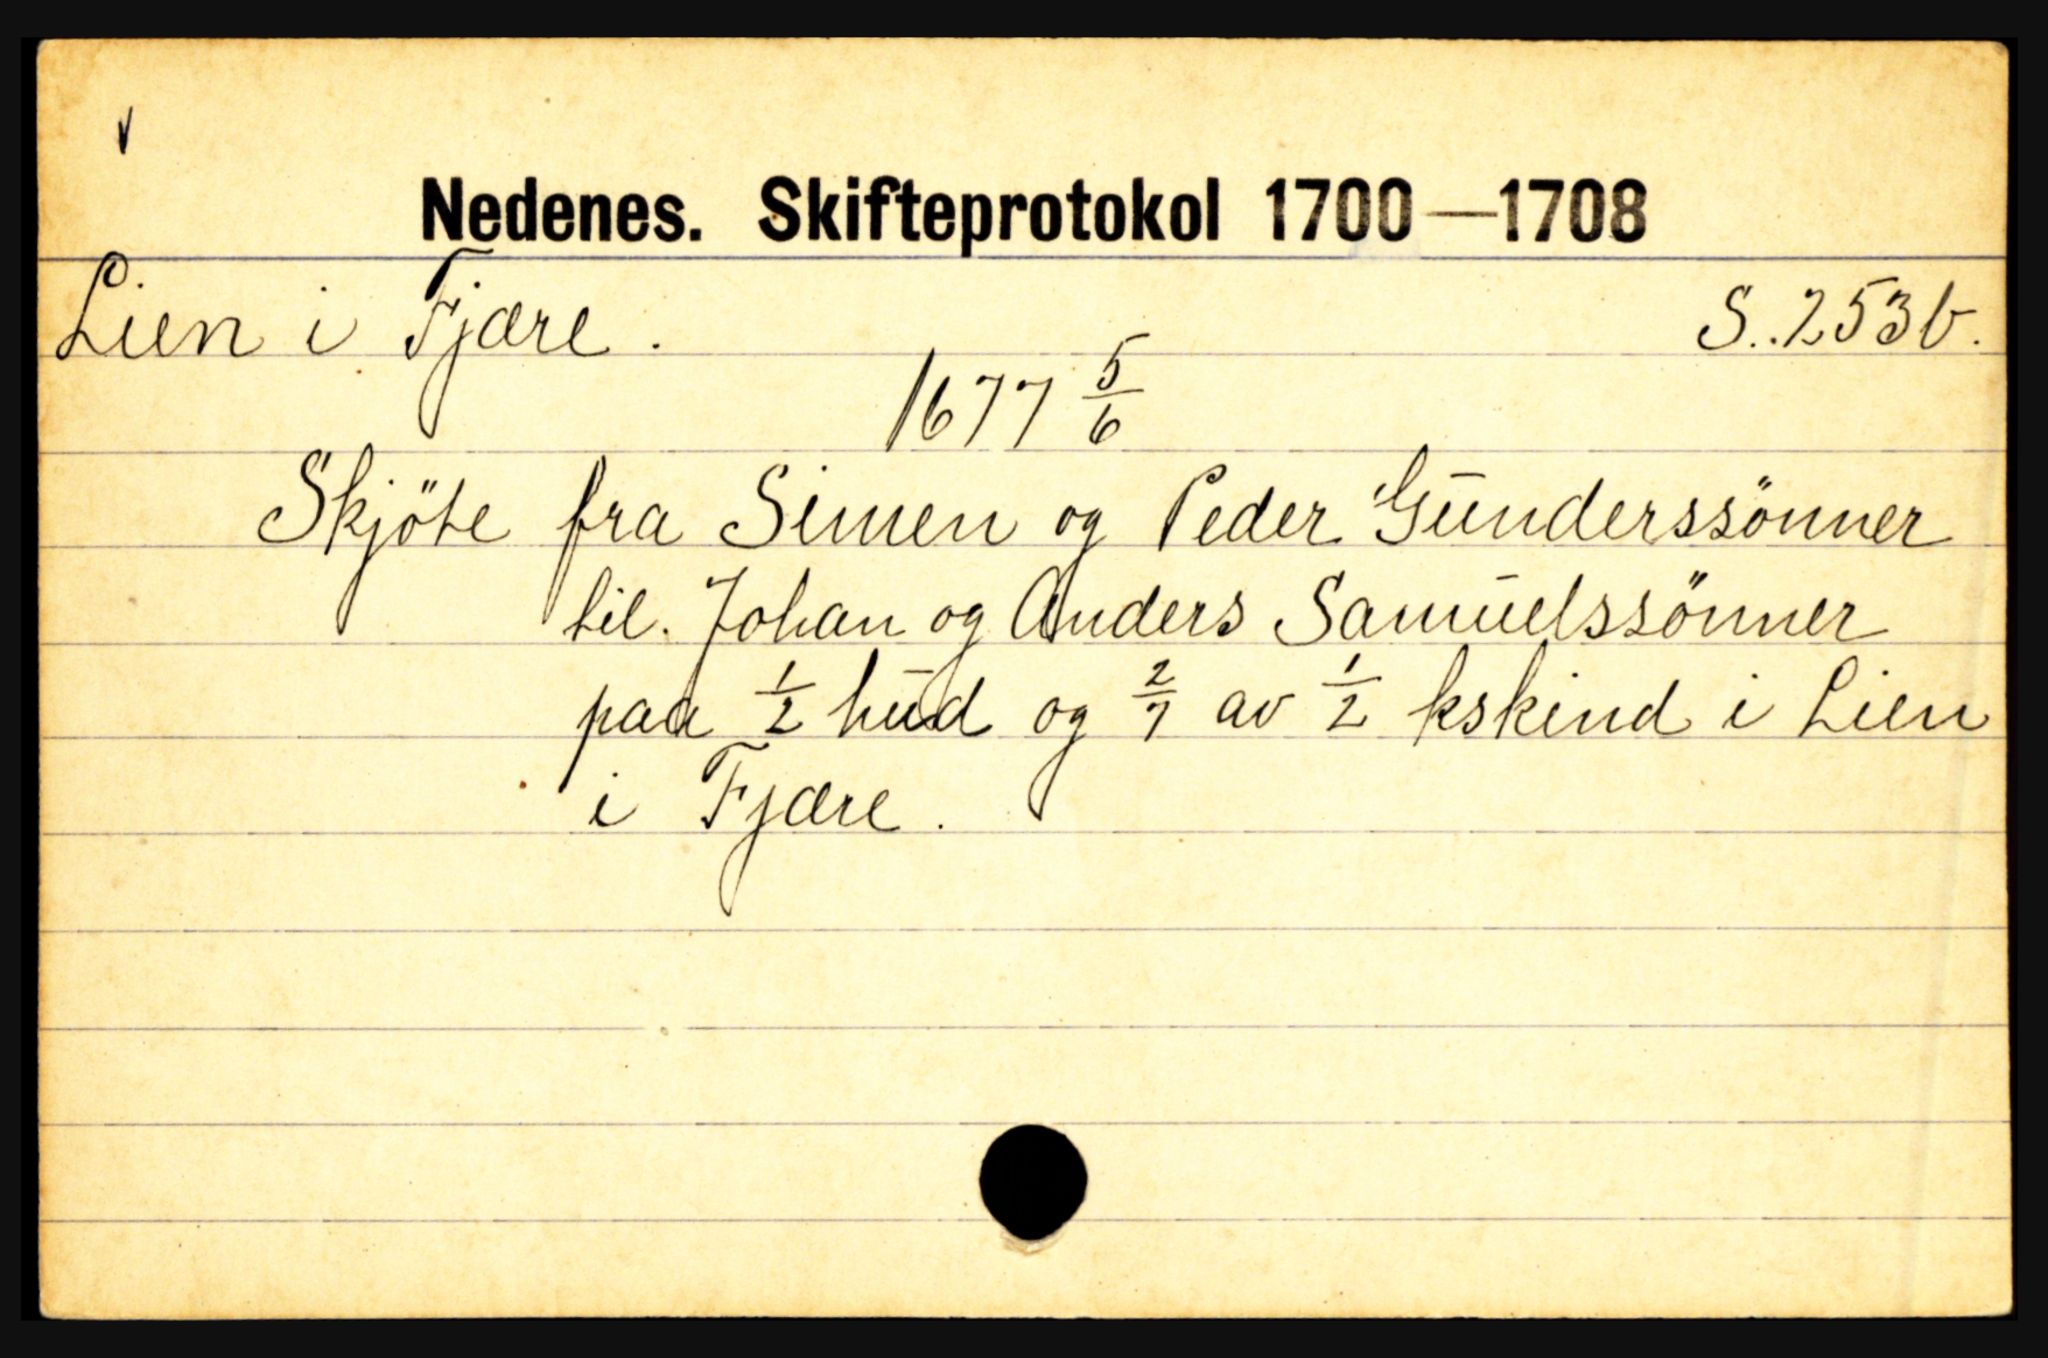 Nedenes. Skifteprotokol 1700—1708
Lien i Fjære. S. 253b.
1677 5/6
Skjöte fra Simen og Peder Gūnderssönner
til Johan og Anders Samūelssönner
paa 1/2 hūd og 2/7 av 1/2 kskind i Lien
i Fjære.